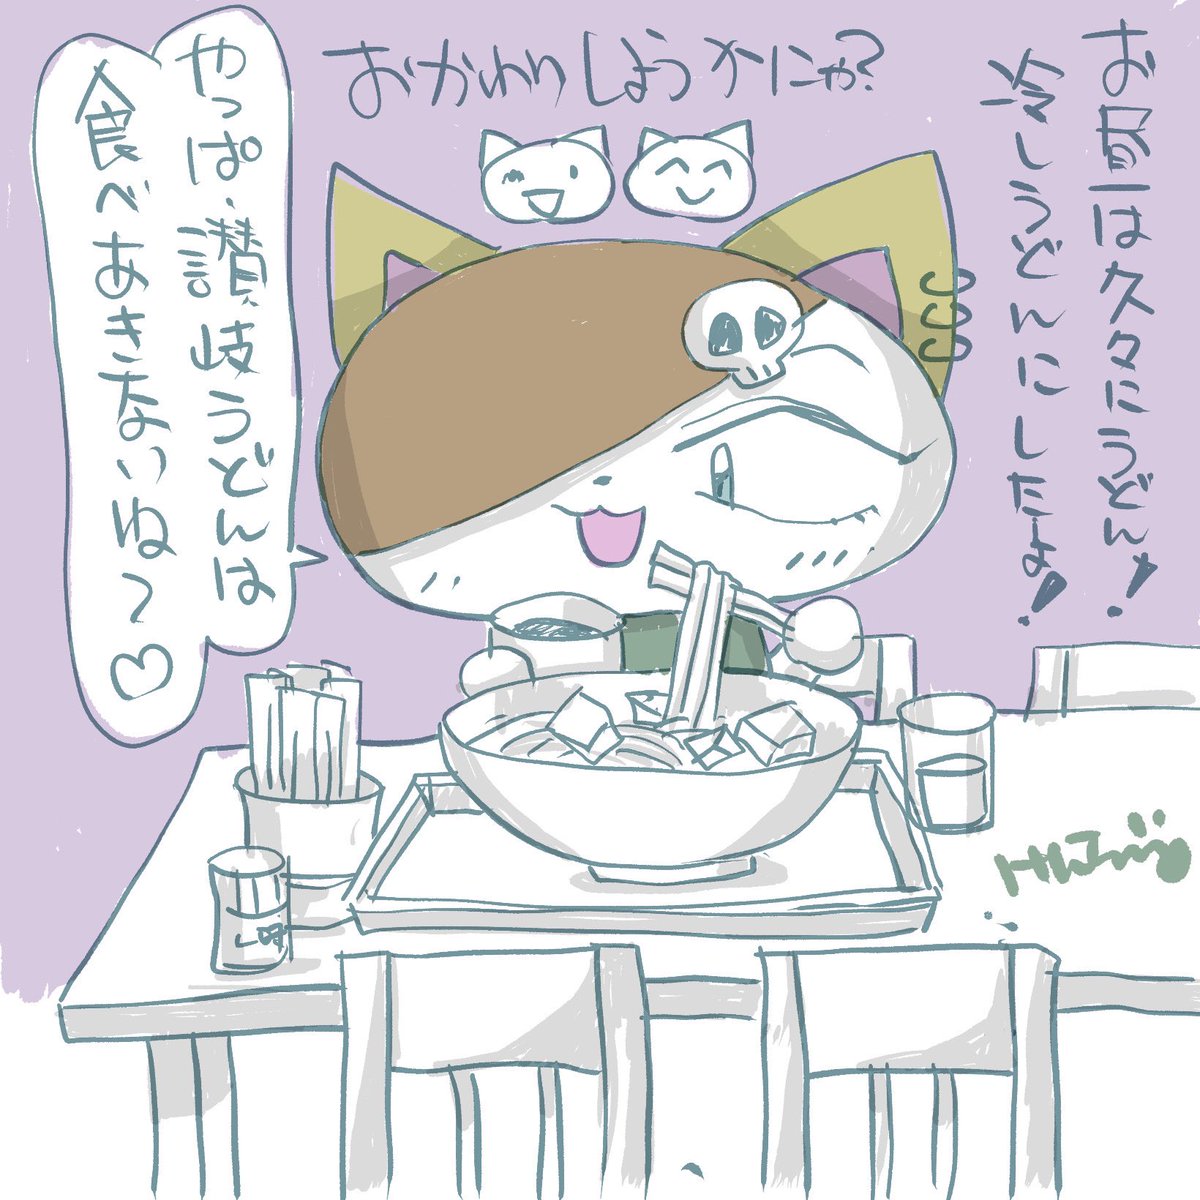 お昼は久々にうどん!
冷しうどんにしたよ!
おかわりしようかにゃ?
やっぱ、讃岐うどんは
食べあきないね〜♡
一味